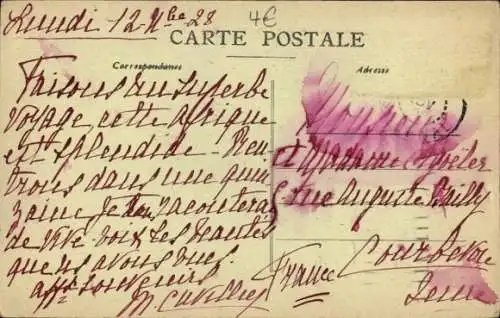 Lundi 12 Nbe 28
4€
CARTE POSTALE
Correspondance
Adresse
Faisons un superbe
voyage, cette Afrique
est splendide - Ren
trons dans une quin
zaine, je racouterai
de vive voix les beautés
que ns avons vues.
affx souvenirs
M. Cuvellier
Monsieur
et Madame
rue Auguste Bailly
Courbevoie
Seine
France